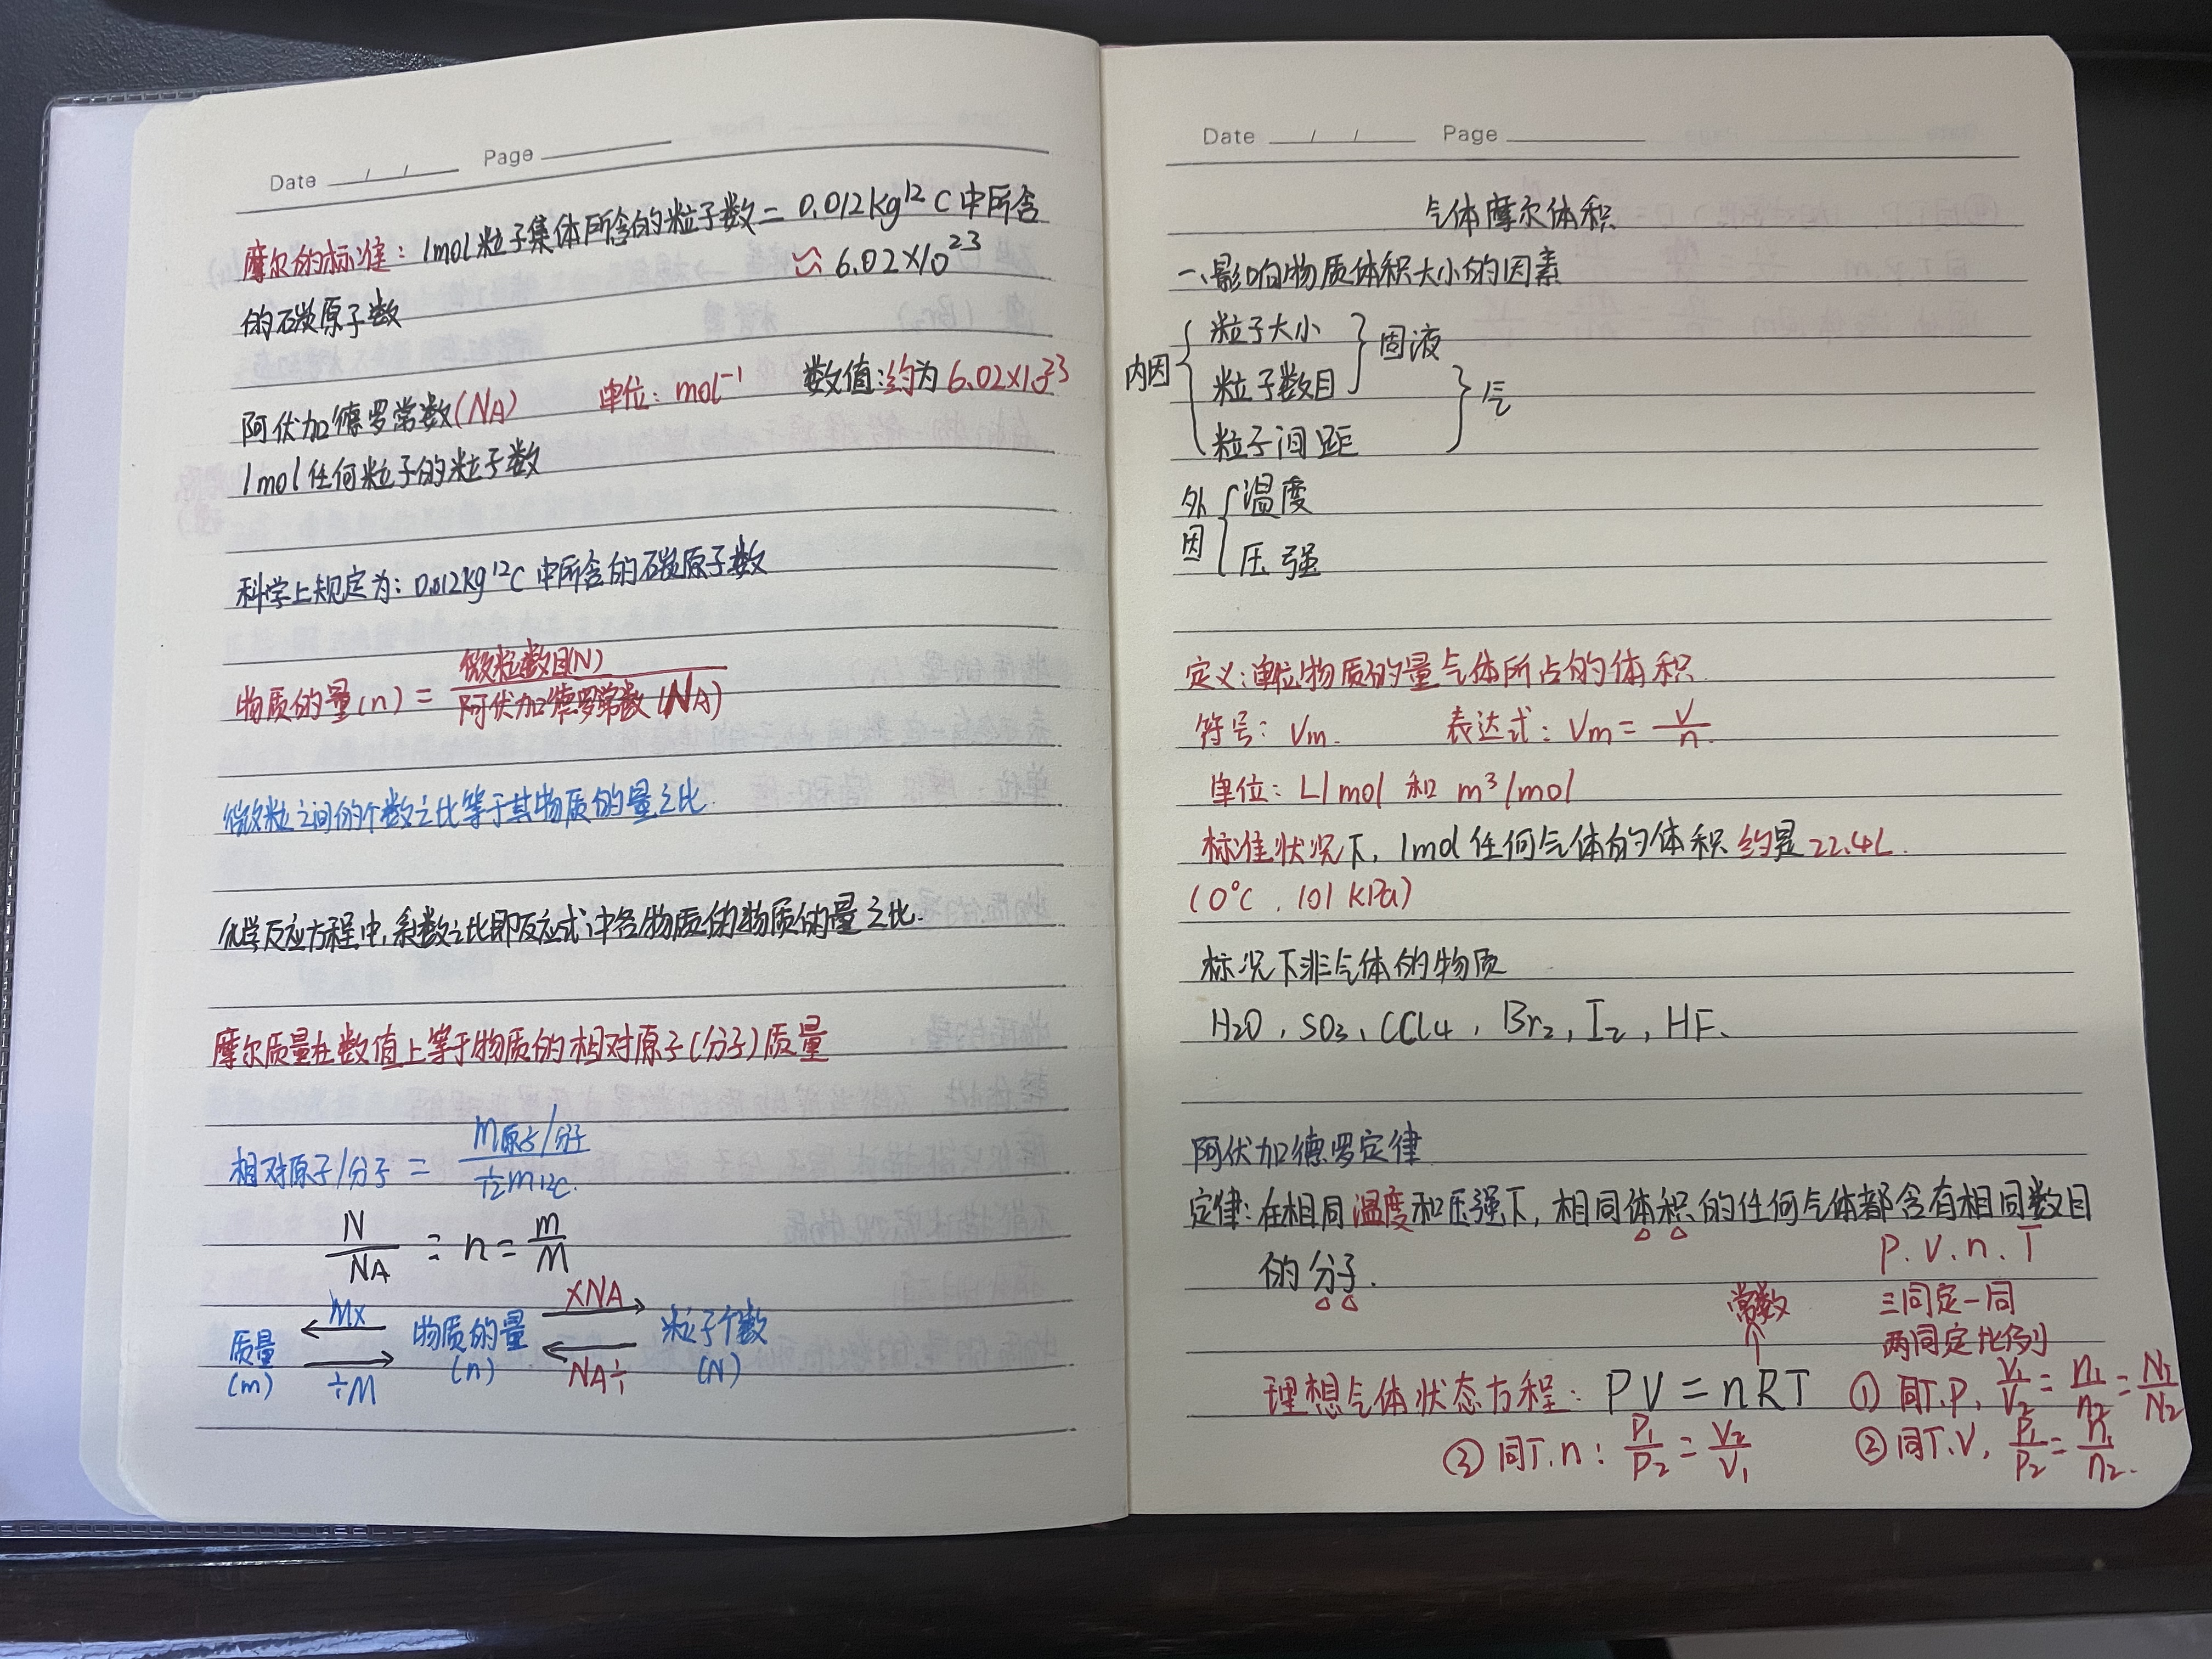 Date / / Page
摩尔的标准：1mol粒子集体所含的粒子数=0.012kg¹²C中所含
的碳原子数 ≈6.02×10²³
阿伏加德罗常数(NA) 单位：mol⁻¹ 数值：约为6.02×10²³
1mol任何粒子的粒子数
科学上规定为：0.012kg¹²C中所含的碳原子数
微粒数目(N)
物质的量(n)=
阿伏加德罗常数(NA)
微粒之间的个数之比等于其物质的量之比.
化学反应方程中，系数之比即反应式中各物质的物质的量之比.
摩尔质量在数值上等于物质的相对原子(分子)质量
相对原子/分子 = m原子/分子 / 1/12 m12C.
N/NA = n = m/M
质量 (m) ×M ÷M 物质的量 (n) ×NA NA÷ 粒子个数 (N)
Date / / Page
气体摩尔体积
一、影响物质体积大小的因素
内因 { 粒子大小
粒子数目 } 固液
粒子间距 } 气
外因 { 温度
压强
定义：单位物质的量气体所占的体积.
符号：Vm. 表达式：Vm=V/n
单位：L/mol 和 m³/mol
标准状况下，1mol任何气体的体积约是22.4L.
(0℃，101kPa)
标况下非气体的物质
H2O、SO3、CCl4、Br2、I2、HF、
阿伏加德罗定律
定律：在相同温度和压强下，相同体积的任何气体都含有相同数目
的分子.
P.V.n.T
三同定一同
两同定比例
常数
理想气体状态方程：PV=nRT ①同T.P，V1/V2=n1/n2=N1/N2
③同T.n：P1/P2=V2/V1 ②同T.V，P1/P2=n1/n2.